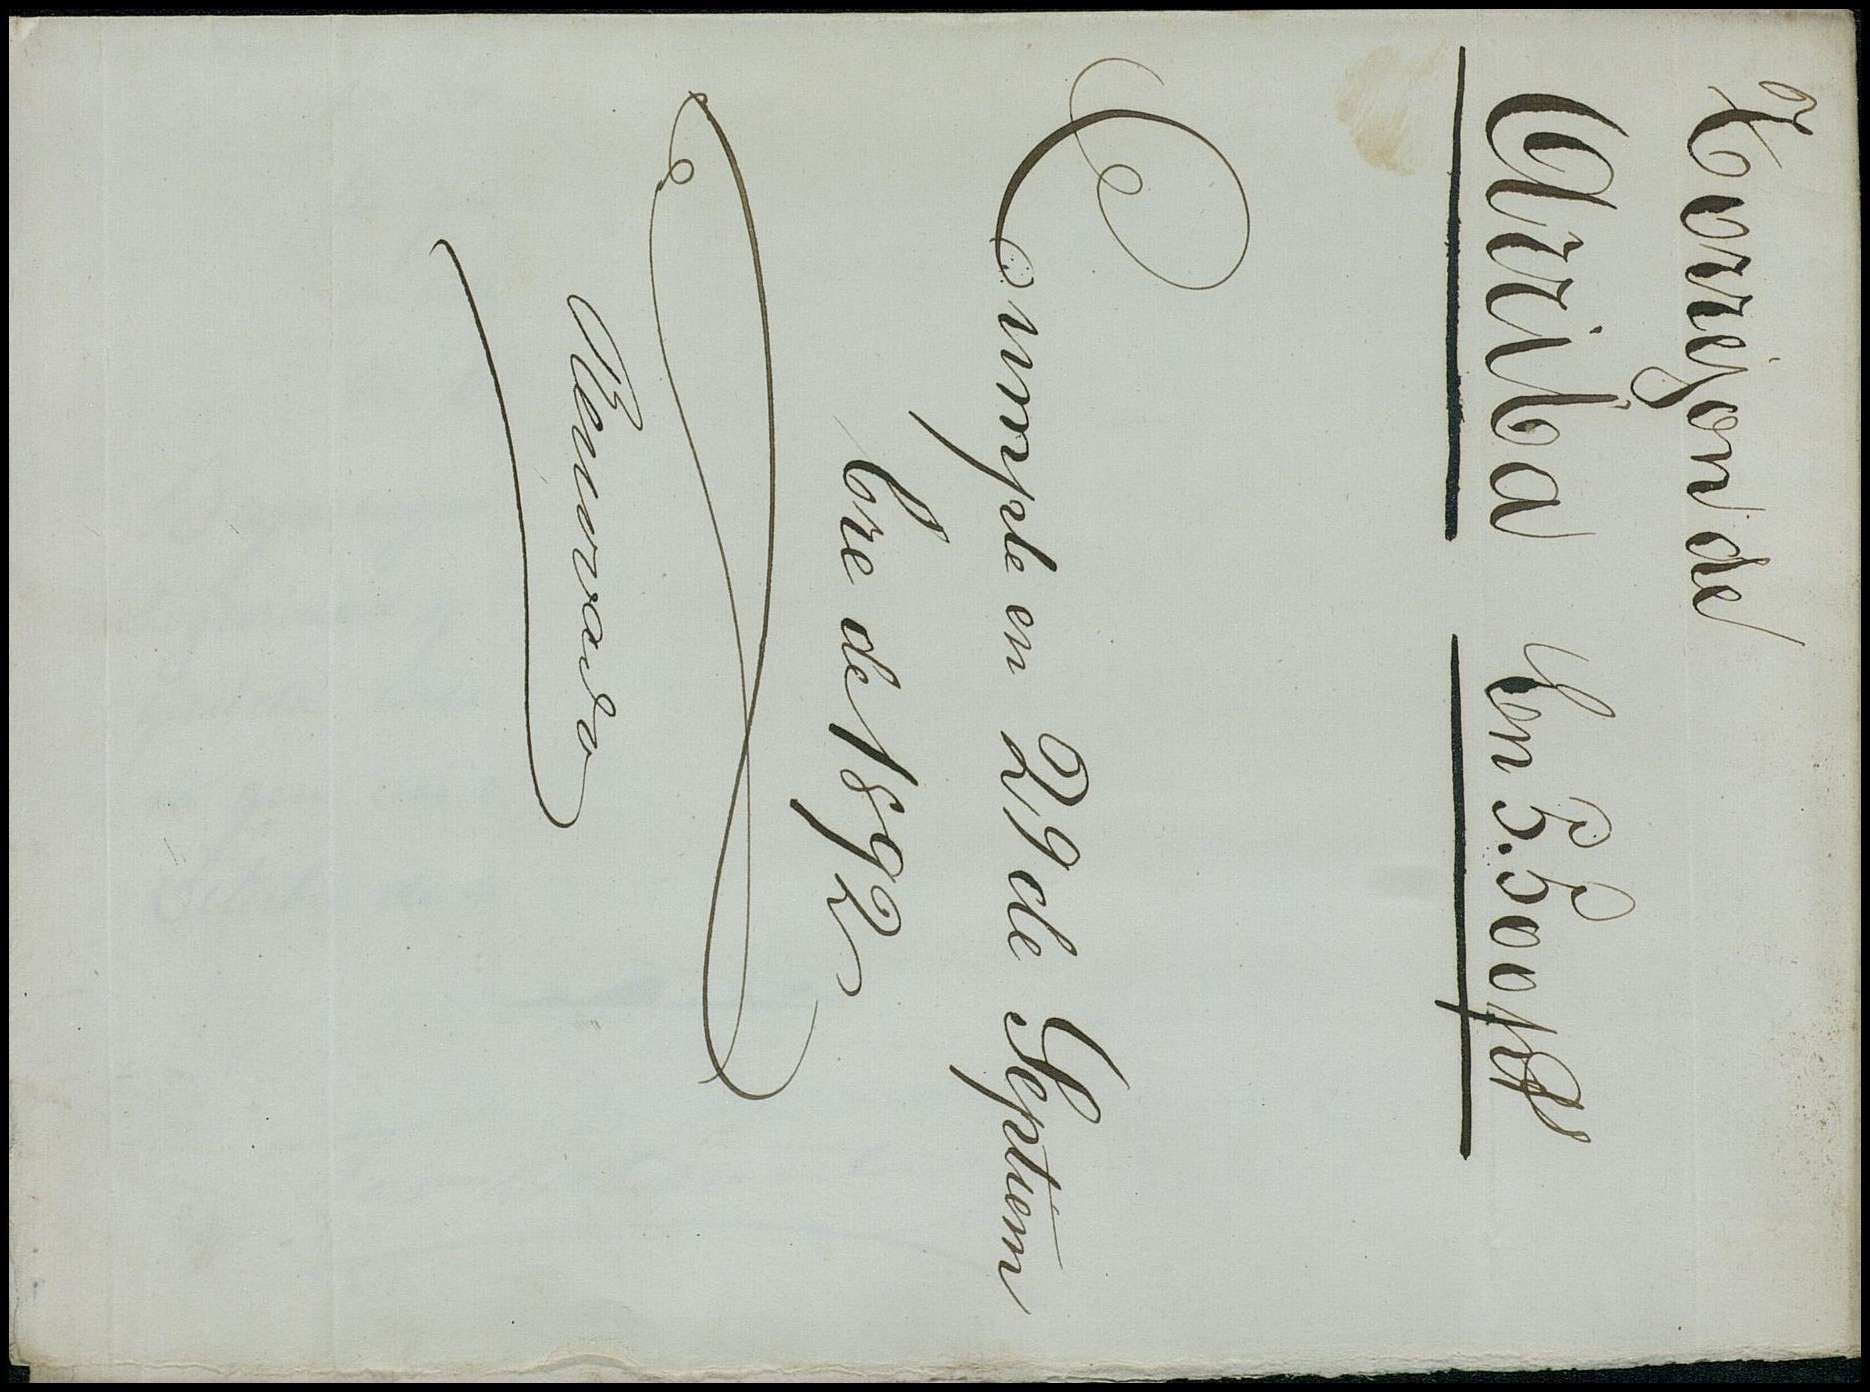 Torrejon de
Arriba En 5.500 Pts
Cumple en 29 de Septiem
bre de 1892
Renovado